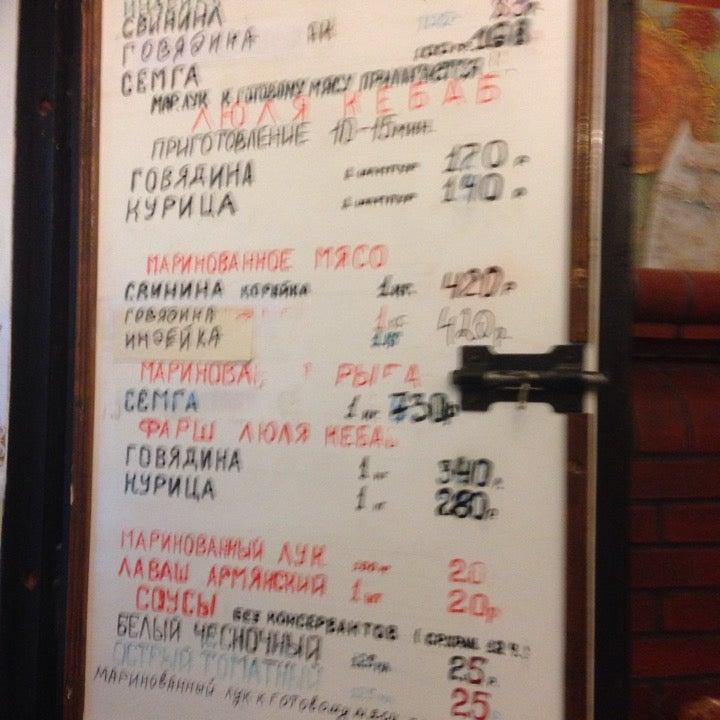 СВИНИНА
ГОВЯДИНА
СЕМГА 161
МАР.ЛУК К ГОТОВОМУ МЯСУ ПРИЛАГАЕТСЯ
ЛЮЛЯ КЕБАБ
ПРИГОТОВЛЕНИЕ 10-15 мин.
ГОВЯДИНА 170 р
КУРИЦА 140 р
МАРИНОВАННОЕ МЯСО
СВИНИНА корейка 1 кг. 420 р
ГОВЯДИНА 1 кг 410 р.
ИНДЕЙКА 1 кг
МАРИНОВА РЫБА
СЕМГА 1 кг 730 р
ФАРШ ЛЮЛЯ КЕБА
ГОВЯДИНА 1 кг 340 р.
КУРИЦА 1 кг 280 р.
МАРИНОВАННЫЙ ЛУК 20
ЛАВАШ АРМЯНСКИЙ 1 шт 20 р
СОУСЫ БЕЗ КОНСЕРВАНТОВ
БЕЛЫЙ ЧЕСНОЧНЫЙ 25 р.
ОСТРЫЙ ТОМАТНЫЙ 25
МАРИНОВАННЫЙ ЛУК К ГОТОВОМУ МЯСУ